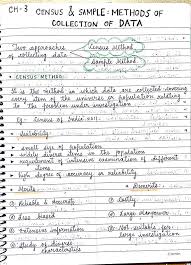 CH-3
CENSUS & SAMPLE: METHODS OF
COLLECTION OF DATA
Two approaches
of collecting data
Census Method
Sample Method
CENSUS METHOD:
It is the method in which data are collected covering
every item of the universe or population relating
to the problem under investigation.
Eg: Census of India
Suitability:
small size of population
widely diverse items in the population
requirement of intensive examination of different
items
high degree of accuracy or reliability
Merits
Demerits:
Reliable & Accurate
Costly
Less biased
Large Manpower
Extensive information
Not suitable for
large investigation
Study of diverse
characteristics